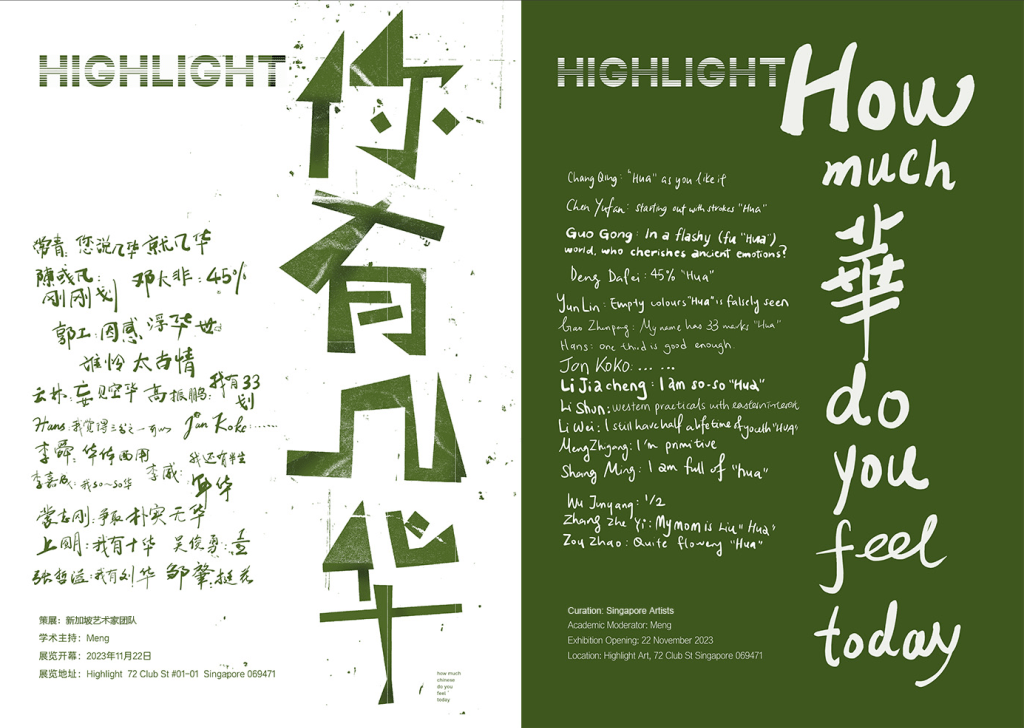 HIGHLIGHT
你有几华
常青: 您说几华 就几华
陳彧凡: 刚刚划
邓大非: 45%
郭工: 因感浮华世
谁怜太古情
云林: 妄见空华
高振鹏: 我有33划
Hans: 我觉得三分之一可以
Jon Koko......
李舜: 华体西用
李威: 我还有半生年华
李嘉成: 我so~so华
蒙志刚: 争取朴实无华
上明: 我有十华
吴俊勇:
张哲溢: 我有刘华
邹肇: 挺花
策展：新加坡艺术家团队
学术主持：Meng
展览开幕：2023年11月22日
展览地址：Highlight 72 Club St #01-01 Singapore 069471
how much
chinese
do you
feel
today
HIGHLIGHT
How
much
華
do
you
feel
today
Chang Qing: "Hua" as you like it
Chen Yufan: Starting out with strokes "Hua"
Guo Gong: In a flashy (fu "Hua")
world, who cherishes ancient emotions?
Deng Dafei: 45% "Hua"
Yun Lin: Empty colours "Hua" is falsely seen
Gao Zhenpeng: My name has 33 marks "Hua"
Hans: one third is good enough.
Jon KoKo: ... ...
Li Jiacheng: I am so-so "Hua"
Li Shun: western practicals with eastern interior
Li Wei: I still have half a lifetime of youth "HUA"
Meng Zhigang: I'm primitive
Shang Ming: I am full of "hua"
Wu Junyang: 1/2
Zhang Zhe Yi: My mom is Liu "Hua"
Zou Zhao: Quite flowery "Hua"
Curation: Singapore Artists
Academic Moderator: Meng
Exhibition Opening: 22 November 2023
Location: Highlight Art, 72 Club St Singapore 069471